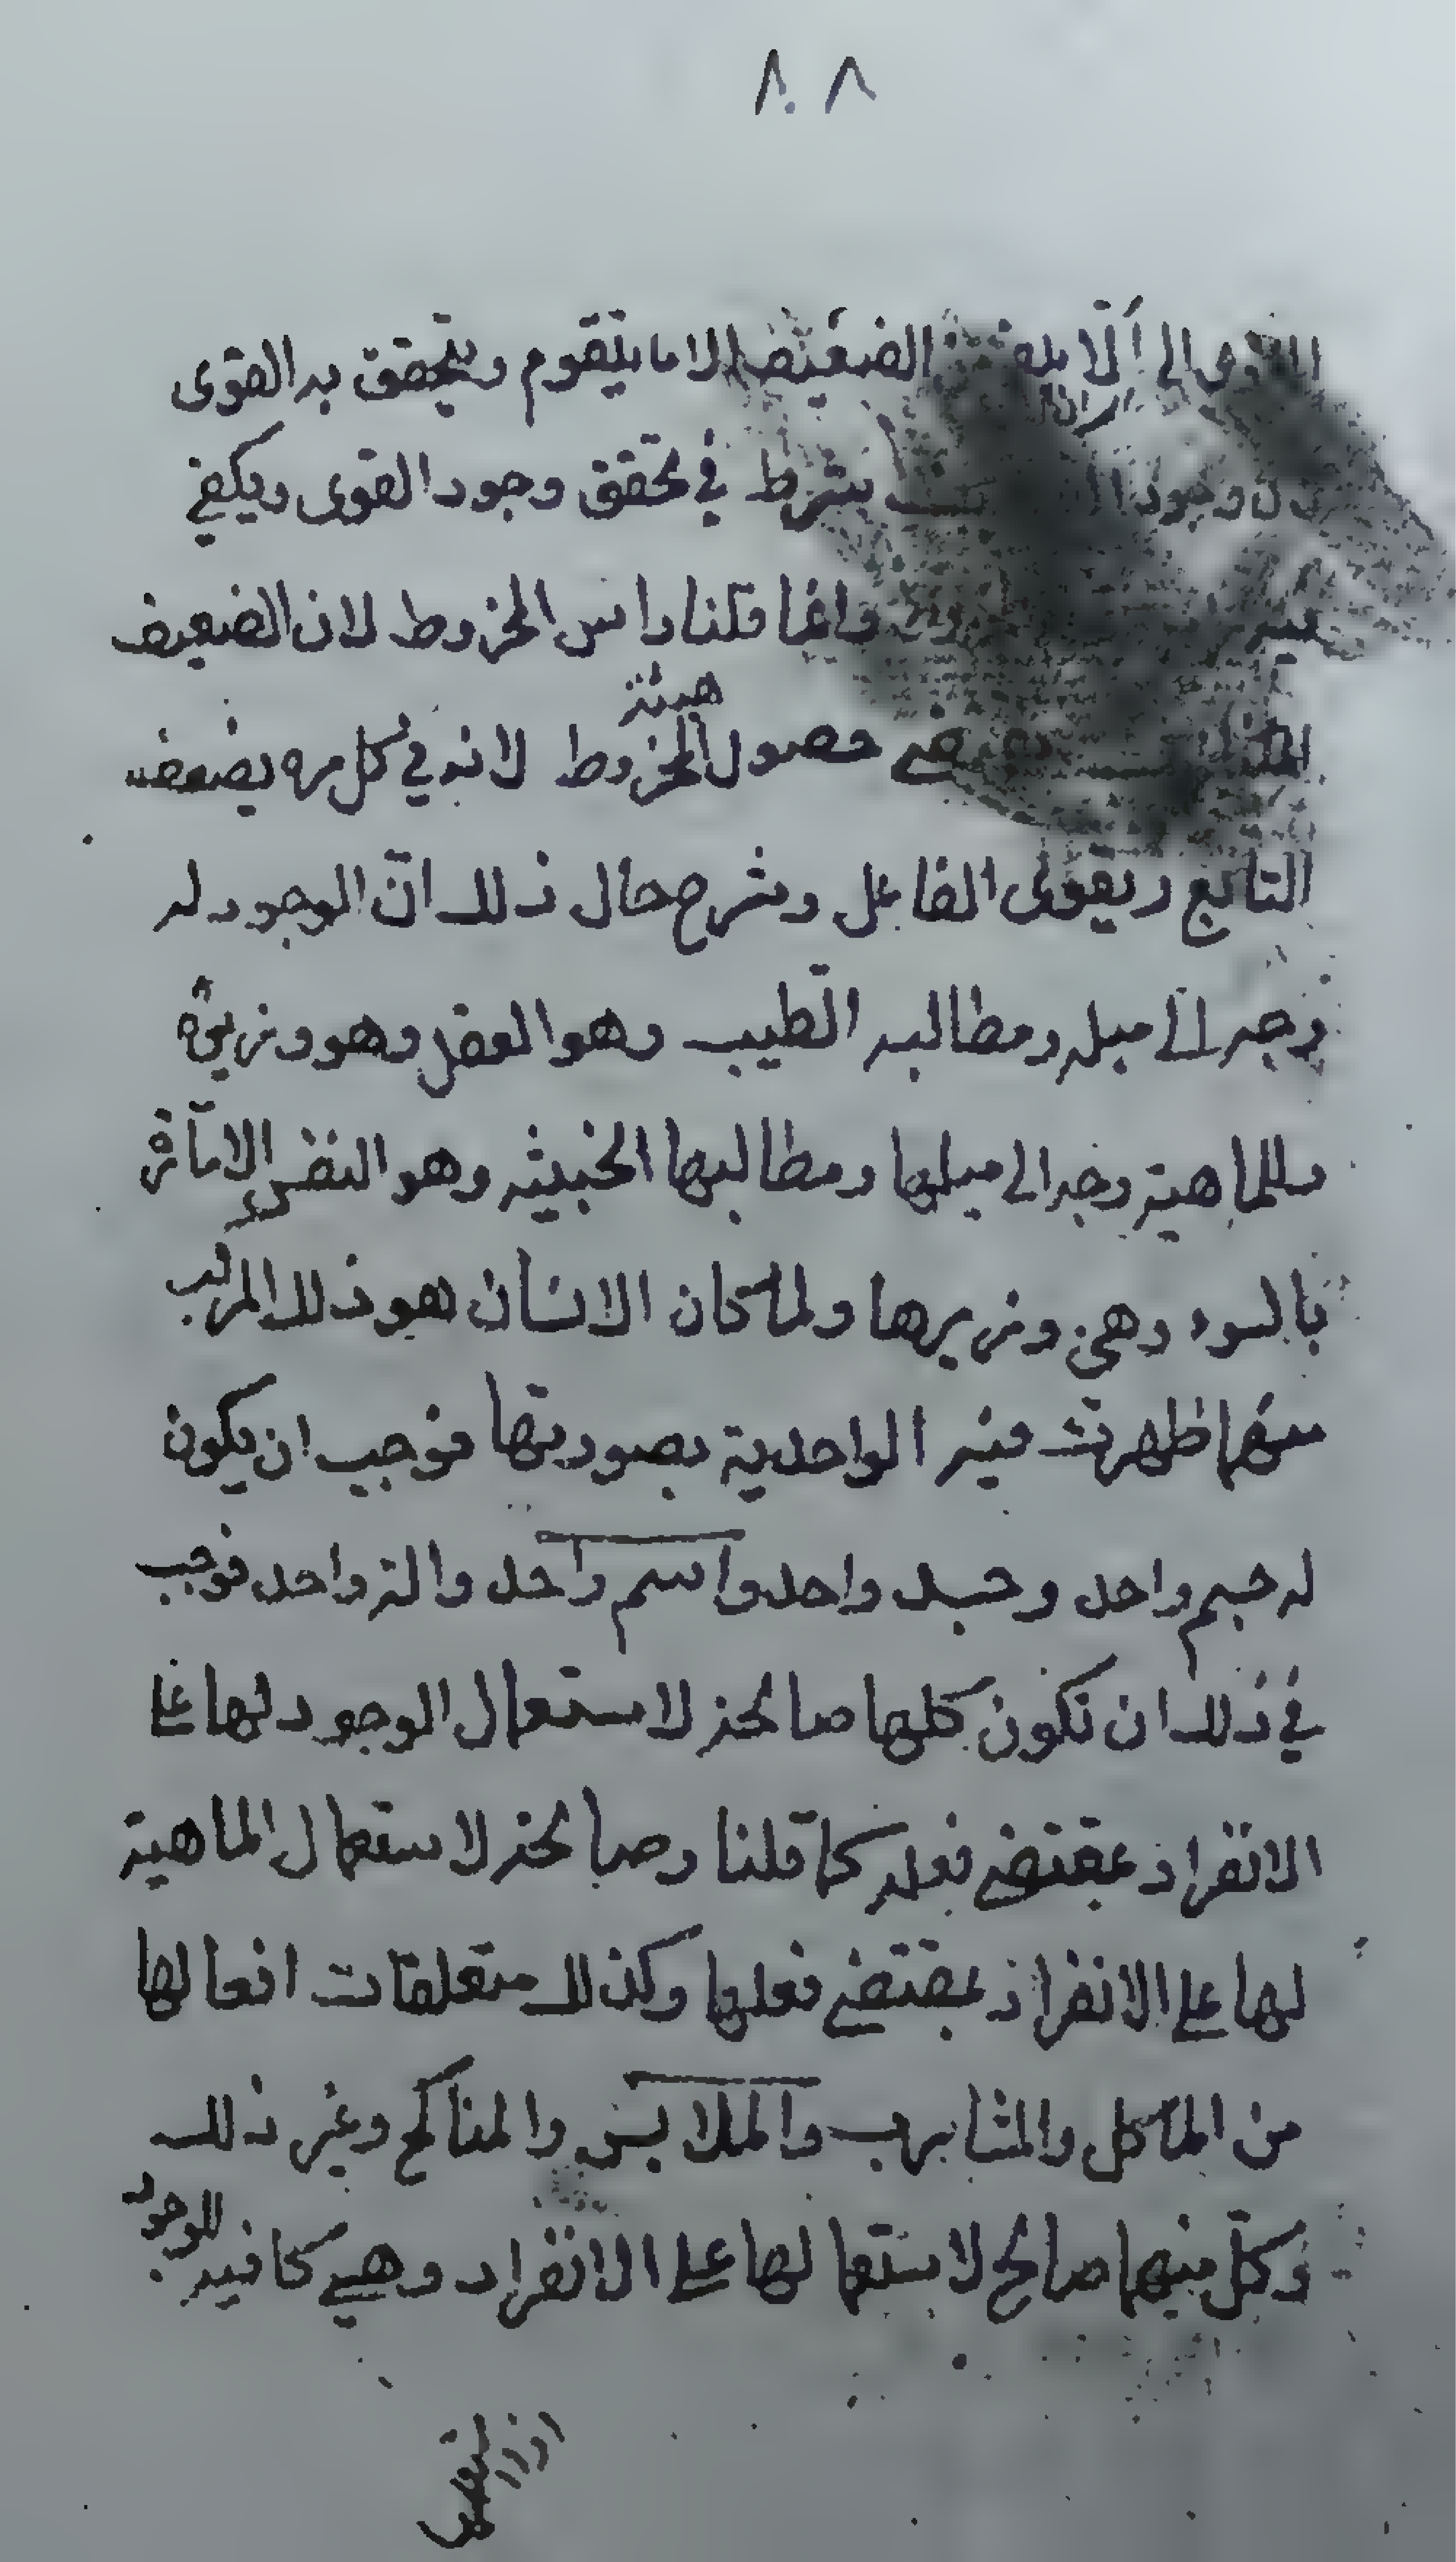 ٨٠٨
الى ألّا الضعيف الا ما يتقوم ويتحقق به القوى
وجود بشرط في تحقق وجود القوى ويكفي
وانما قلنا راس المخروط لان الضعيف
حصول هيئة المخروط لانه في كل مره يضعف
التابع ويقوى الفاعل وشرح حال ذلك انّ الوجود له
وجه الى ميله ومطالبه الطّيب وهو العقل وهو وزيره
وللماهية وجه الى ميلها ومطالبها الخبيثه وهو النفس الامّارة
بالسوء وهي وزيرها ولما كان الانسان هو ذلك المركب
منهما ظهرت فيه الواحدية بصورتها فوجب ان يكون
له جسم واحد وجسد واحد واسم واحد والة واحد فوجب
في ذلك ان تكون كلها صالحة لاستعمال الوجود لها على
الانفراد بمقتضى فعله كما قلنا وصالحة لاستعمال الماهية
لها على الانفراد بمقتضى فعلها وكذلك متعلقات افعالها
من المآكل والمشارب والملابس والمناكح وغير ذلك
وكلّ منهما صالح لاستعمالها على الانفراد وهي كافيه للوجود